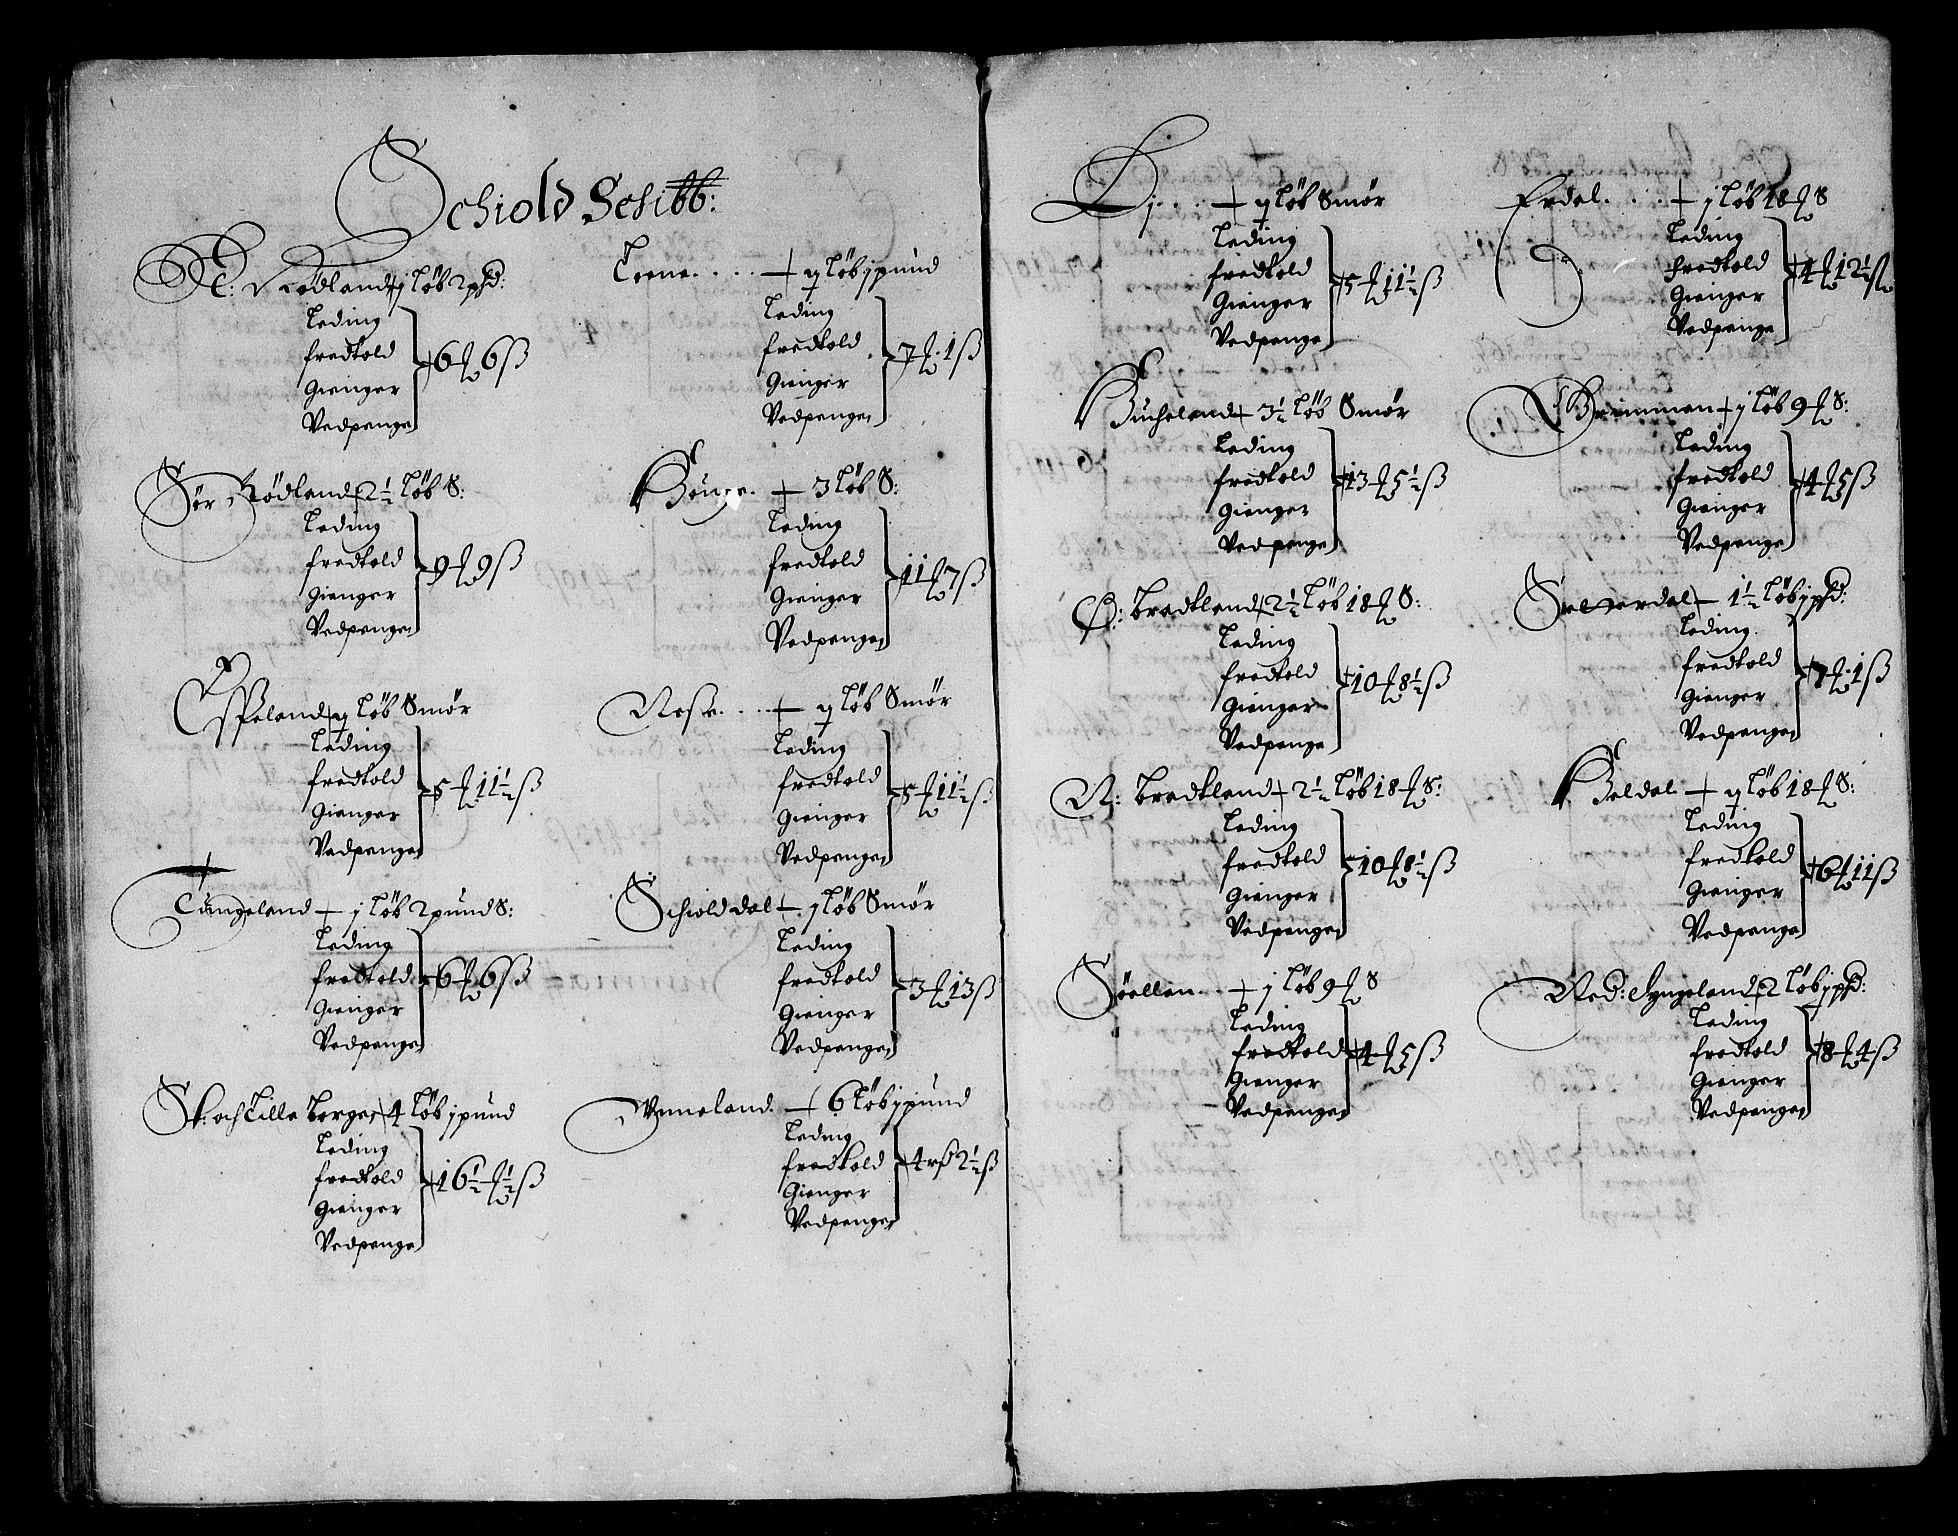 Schiold Schibb:
N: Rødland j løb 2 pd:
Leding
fredtold
Gienger
Vedpenge
6 ℔ 6 ß
Sør Rødland 2½ løb S:
Leding
fredtold
Gienger
Vedpenge
9 ℔ 9 ß
Espeland ij løb Smør
Leding
fredtold
Gienger
Vedpenge
5 ℔ 11½ ß
Tungeland j løb 2 pund S:
Leding
fredtold
Gienger
Vedpenge
6 ℔ 6 ß
St: och Lille Berge 4 løb j pund
Leding
fredtold
Gienger
Vedpenge
16½ ℔ ½ ß
Teene ij løb j pund
Leding
fredtold
Gienger
Vedpenge
7 ℔ 1 ß
3 løb S:
Leding
fredtold
Gienger
Vedpenge
11 ℔ 7 ß
Nese ij løb Smør
Leding
fredtold
Gienger
Vedpenge
5 ℔ 11½ ß
Schiolddal j løb Smør
Leding
fredtold
Gienger
Vedpenge
3 ℔ 13 ß
Unneland 6 løb j pund
Leding
fredtold
Gienger
Vedpenge
2½ ß
Li ij løb Smør
Leding
fredtold
Gienger
Vedpenge
5 ℔ 11½ ß
Hucheland 3½ løb Smør
Leding
fredtold
Gienger
Vedpenge
13 ℔ 5½ ß
Ø: Bredtland 2½ løb 18 ℔ S:
Leding
fredtold
Gienger
Vedpenge
10 ℔ 8½ ß
N: Bredtland 2½ løb 18 ℔ S:
Leding
fredtold
Gienger
Vedpenge
10 ℔ 8½ ß
Søellen j løb 9 ℔ S
Leding
fredtold
Gienger
Vedpenge
4 ℔ 5 ß
Erdal j løb 18 ℔ S
Leding
fredtold
Gienger
Vedpenge
4 ℔ 12½ ß
Brimmen j løb 9 ℔ S:
Leding
fredtold
Gienger
Vedpenge
4 ℔ 5 ß
1½ løb j pd:
Leding
fredtold
Gienger
Vedpenge
7 ℔ 1 ß
Heldal ij løb 18 ℔ S:
Leding
fredtold
Gienger
Vedpenge
6 ℔ 11 ß
Ned: Syngeland 2 løb j pd:
Leding
fredtold
Gienger
Vedpenge
8 ℔ 4 ß